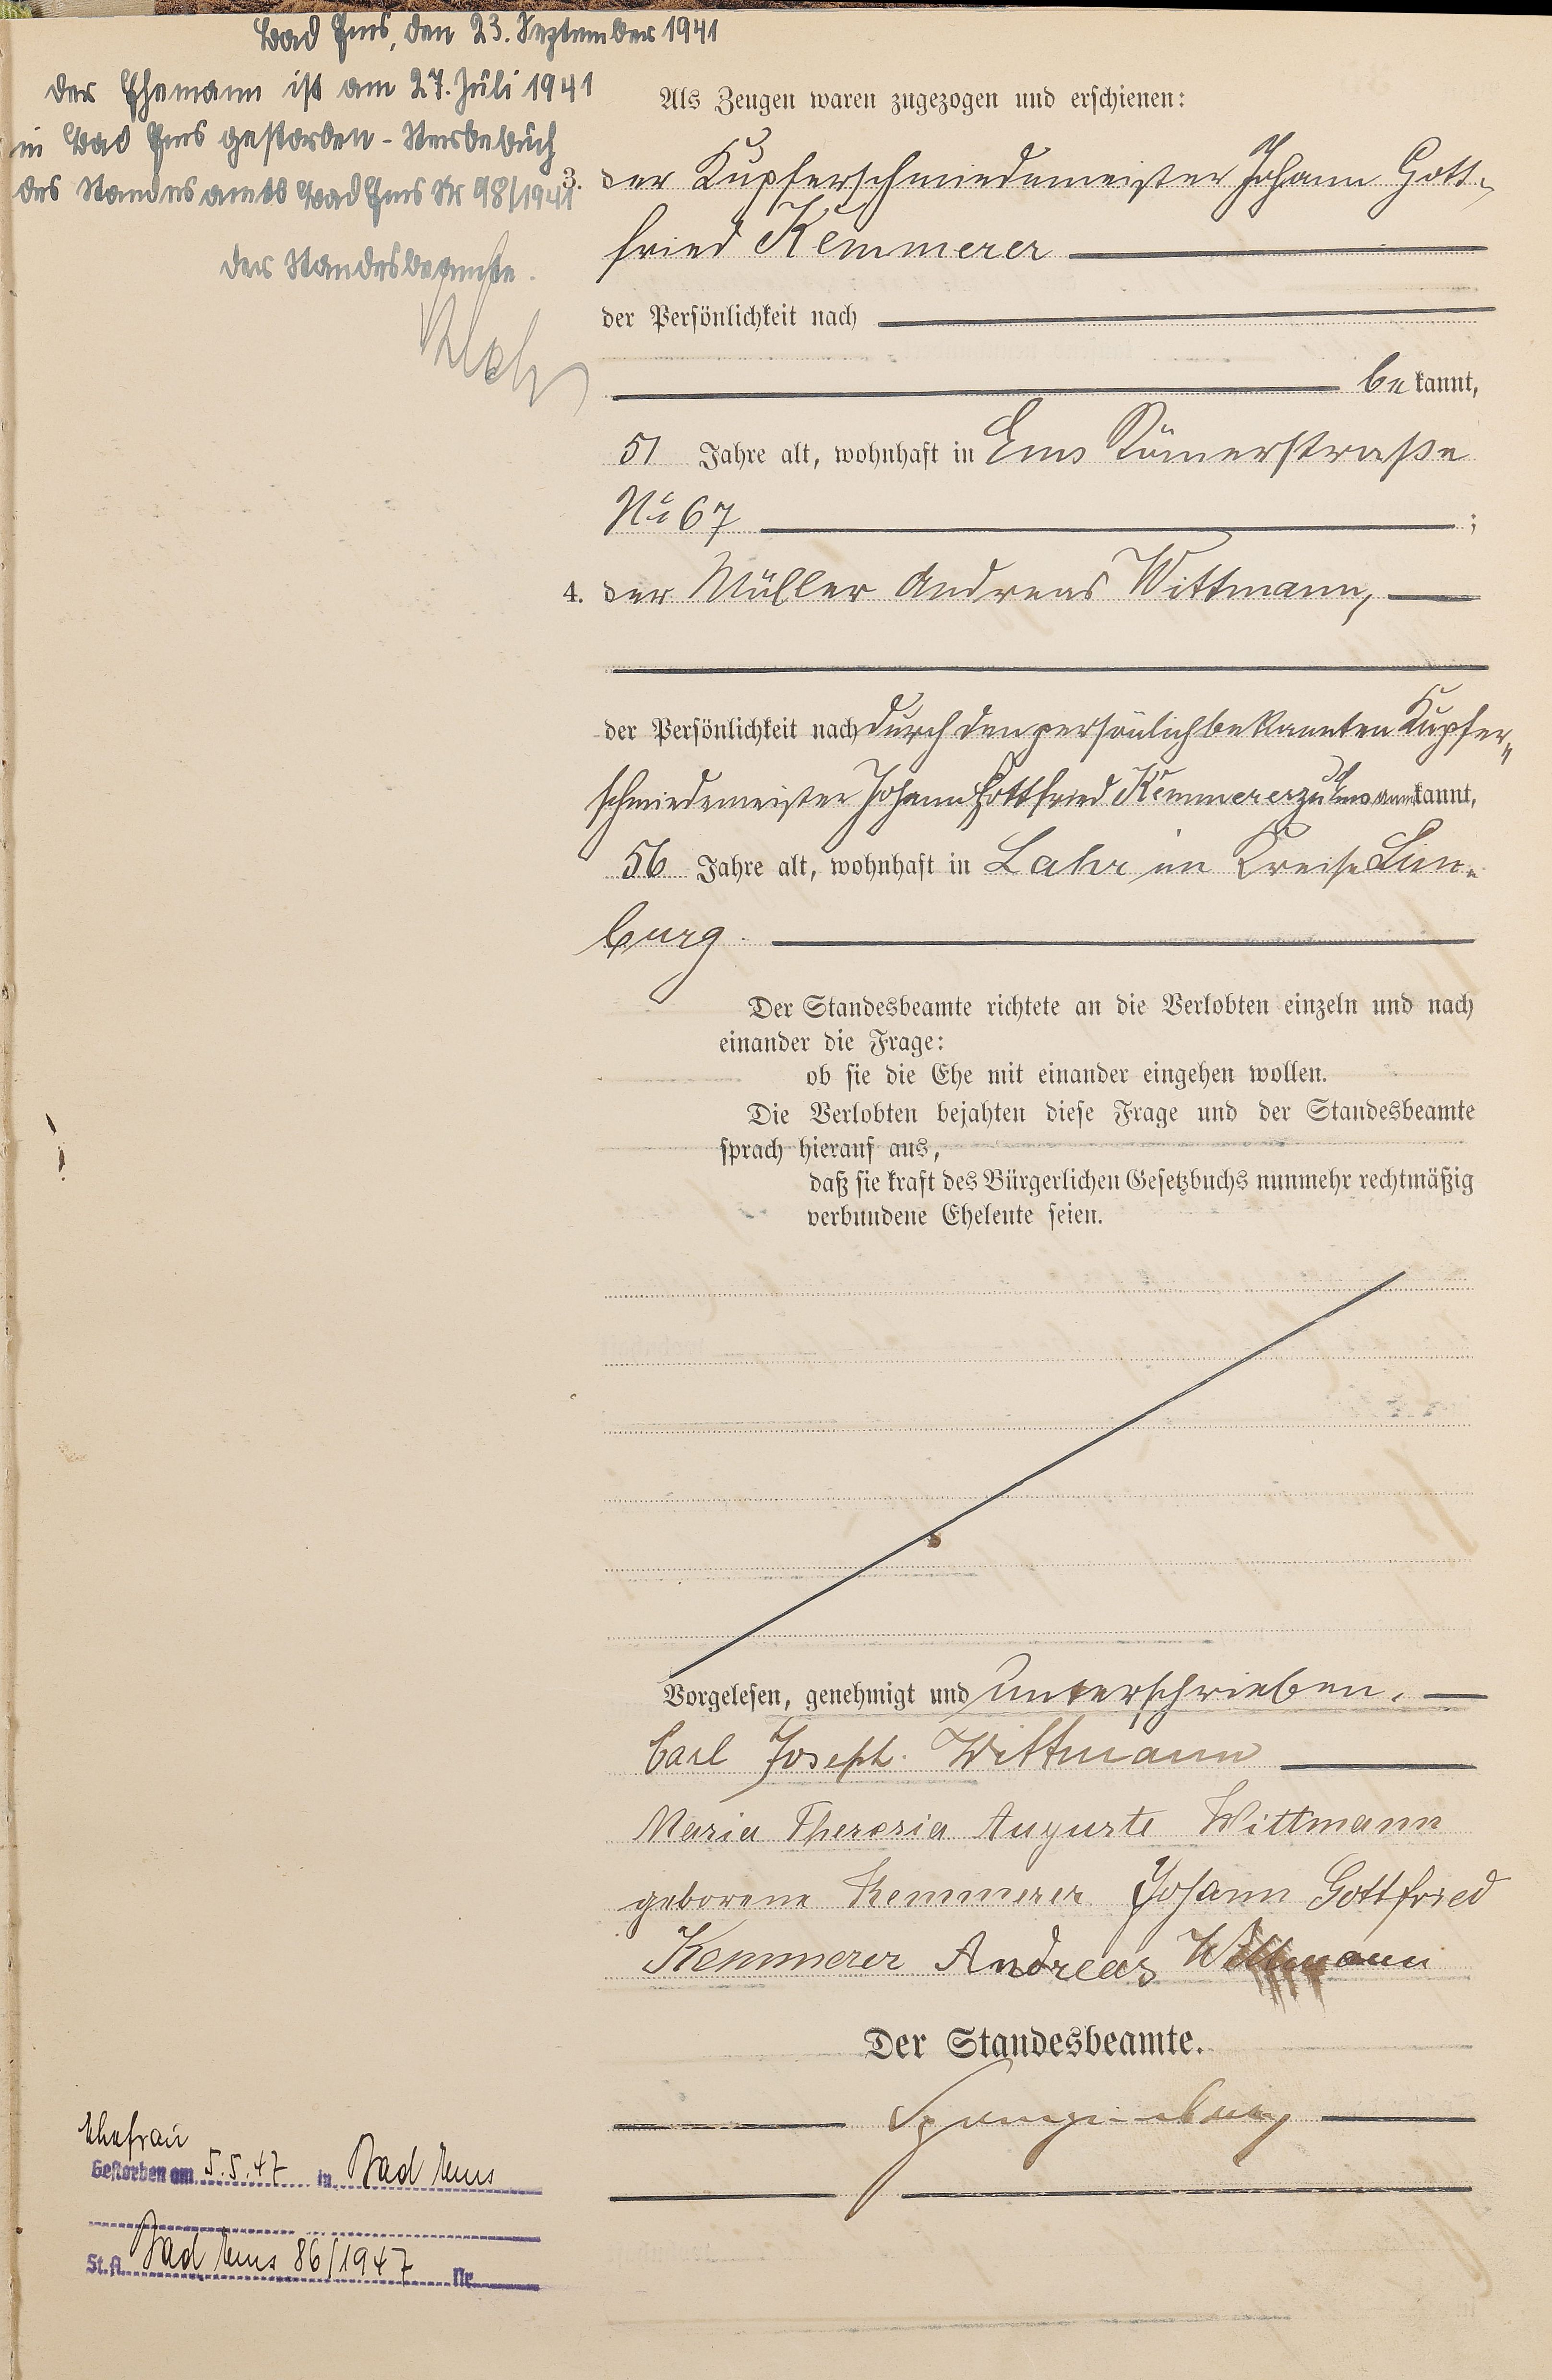 Bad Ems, den 23. September 1941
der Ehemann ist am 27. Juli 1941
in Bad Ems gestorben - Sterbebuch
des Standesamts Bad Ems Nr 98/1941
der Standesbeamte.
Als Zeugen waren zugezogen und erschienen:
3. der Kupferschmiedemeister Johann Gott-
fried Kemmerer
der Persönlichkeit nach
be kannt,
51 Jahre alt, wohnhaft in Ems Römerstraße
No 67 ;
4. der Müller Andreas Wittmann,
der Persönlichkeit nach durch den persönlich bekannten Kupfer-
schmiedemeister Johann Gottfried Kemmerer zu Ems aner kannt,
56 Jahre alt, wohnhaft in Lahr im Kreise Lim-
burg.
Der Standesbeamte richtete an die Verlobten einzeln und nach
einander die Frage:
ob sie die Ehe mit einander eingehen wollen.
Die Verlobten bejahten diese Frage und der Standesbeamte
sprach hierauf aus,
daß sie kraft des Bürgerlichen Gesetzbuchs nunmehr rechtmäßig
verbundene Eheleute seien.
Vorgelesen, genehmigt und unterschrieben.
Carl Joseph Wittmann
Maria Theresia Auguste Wittmann
geborene Kemmerer Johann Gottfried
Kemmerer Andreas Wittmann
Der Standesbeamte.
Spangenberg
Ehefrau
Gestorben am 5.5.47 in Bad Ems
St. A. Bad Ems 86/1947 Nr.